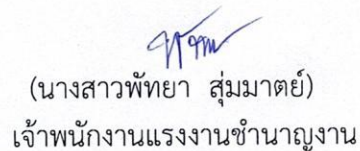 (นางสาวพัทยา สุ่มมาตย์)
เจ้าพนักงานแรงงานชำนาญงาน